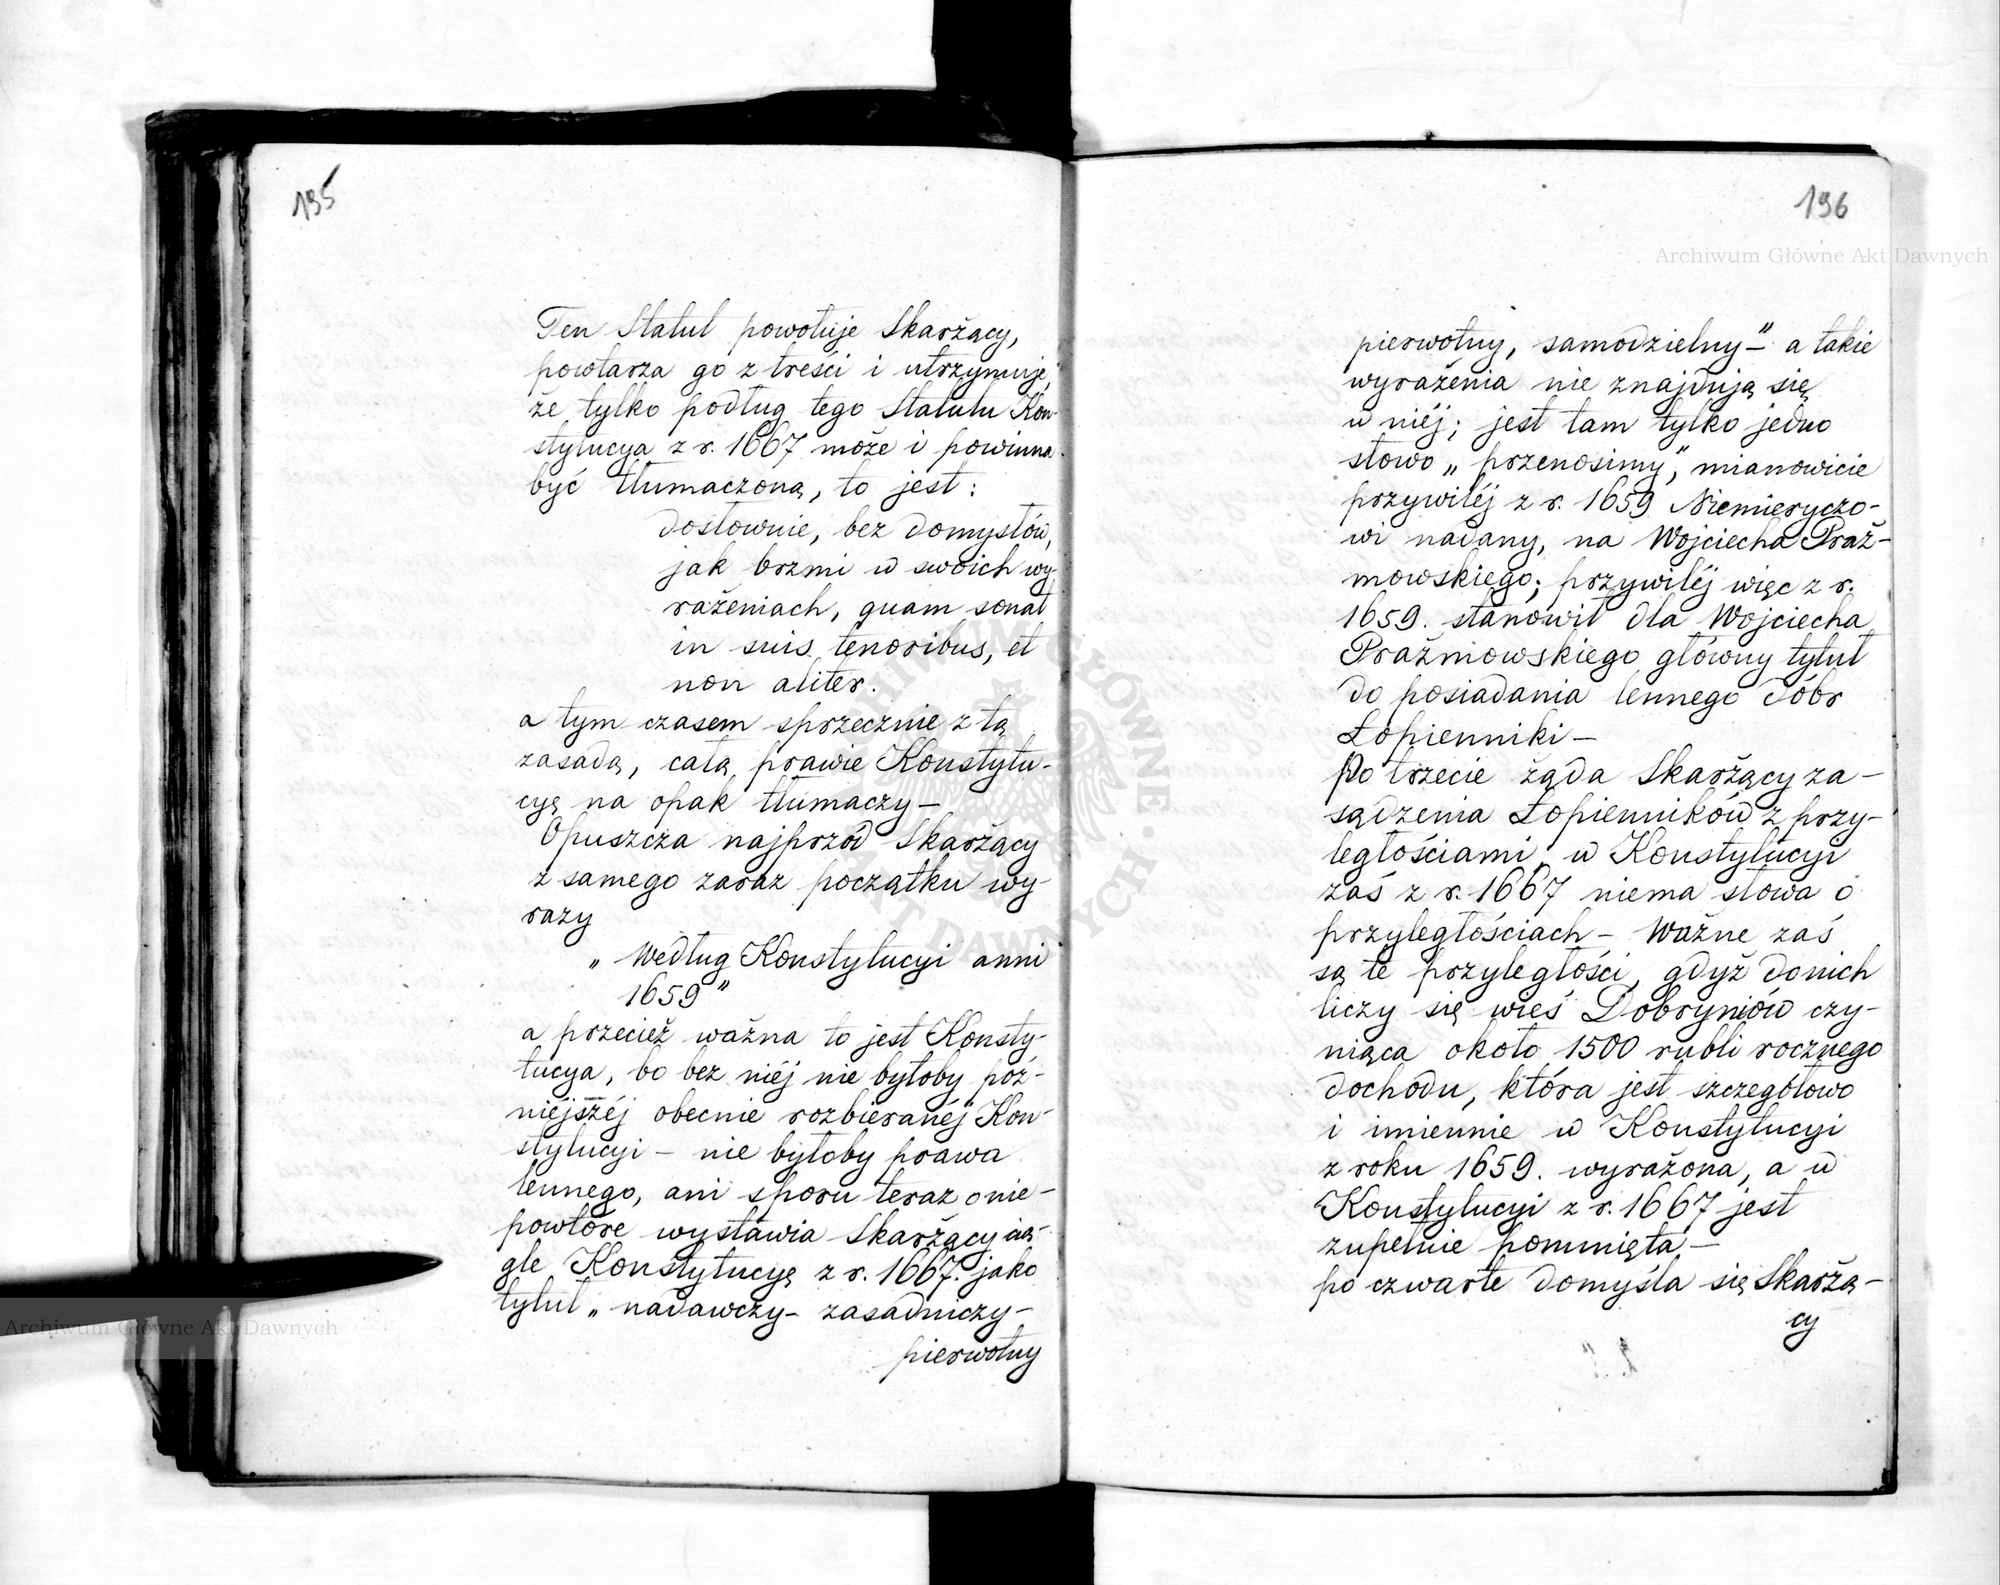 195
Ten Statut powołuje Skarżący,
powtarza go z treści i utrzymuje,
że tylko podług tego Statutu Kon-
stytucya z r. 1667 może i powinna
być tłumaczoną, to jest:
dosłownie, bez domysłów,
jak brzmi w swoich wy-
rażeniach, quam sonat
in suis tenoribus, et
non aliter.
a tym czasem sprzecznie z tą
zasadą, całą prawie Konstytu-
cyę na opak tłumaczy –
Opuszcza najprzód Skarżący
z samego zaraz początku wy-
razy
„Według Konstytucyi anni
1659"
a przecież ważna to jest Konsty-
tucya, bo bez niéj nie byłoby póź-
niejszéj obecnie rozbieranéj Kon-
stytucyi – nie byłoby prawa
lennego, ani sporu teraz o nie –
powtóre wystawia Skarżący cią-
gle Konstytucyę z r. 1667. jako
tytuł „nadawczy – zasadniczy –
pierwotny
196
Archiwum Główne Akt Dawnych
pierwotny, samodzielny –" a takie
wyrażenia nie znajdują się
w niéj; jest tam tylko jedno
słowo „przenosimy", mianowicie
przywiléj z r. 1659 Niemieryczo-
wi nadany, na Wojciecha Praż-
mowskiego; przywiléj więc z r.
1659. stanowił dla Wojciecha
Prażmowskiego główny tytuł
do posiadania lennego dóbr
Łopienniki –
Po trzecie żąda Skarżący za-
sądzenia Łopienników z przy-
ległościami, w Konstytucyi
zaś z r. 1667 niema słowa o
przyległościach – Ważne zaś
są te przyległości, gdyż do nich
liczy się wieś Dobryniów czy-
niąca około 1500 rubli rocznego
dochodu, która jest szczegółowo
i imiennie w Konstytucyi
z roku 1659. wyrażona, a w
Konstytucyi z r. 1667 jest
zupełnie pominięta. –
po czwarte domyśla się Skarżą-
cy
ARCHIWUM GŁÓWNE AKT DAWNYCH
Archiwum Główne Akt Dawnych